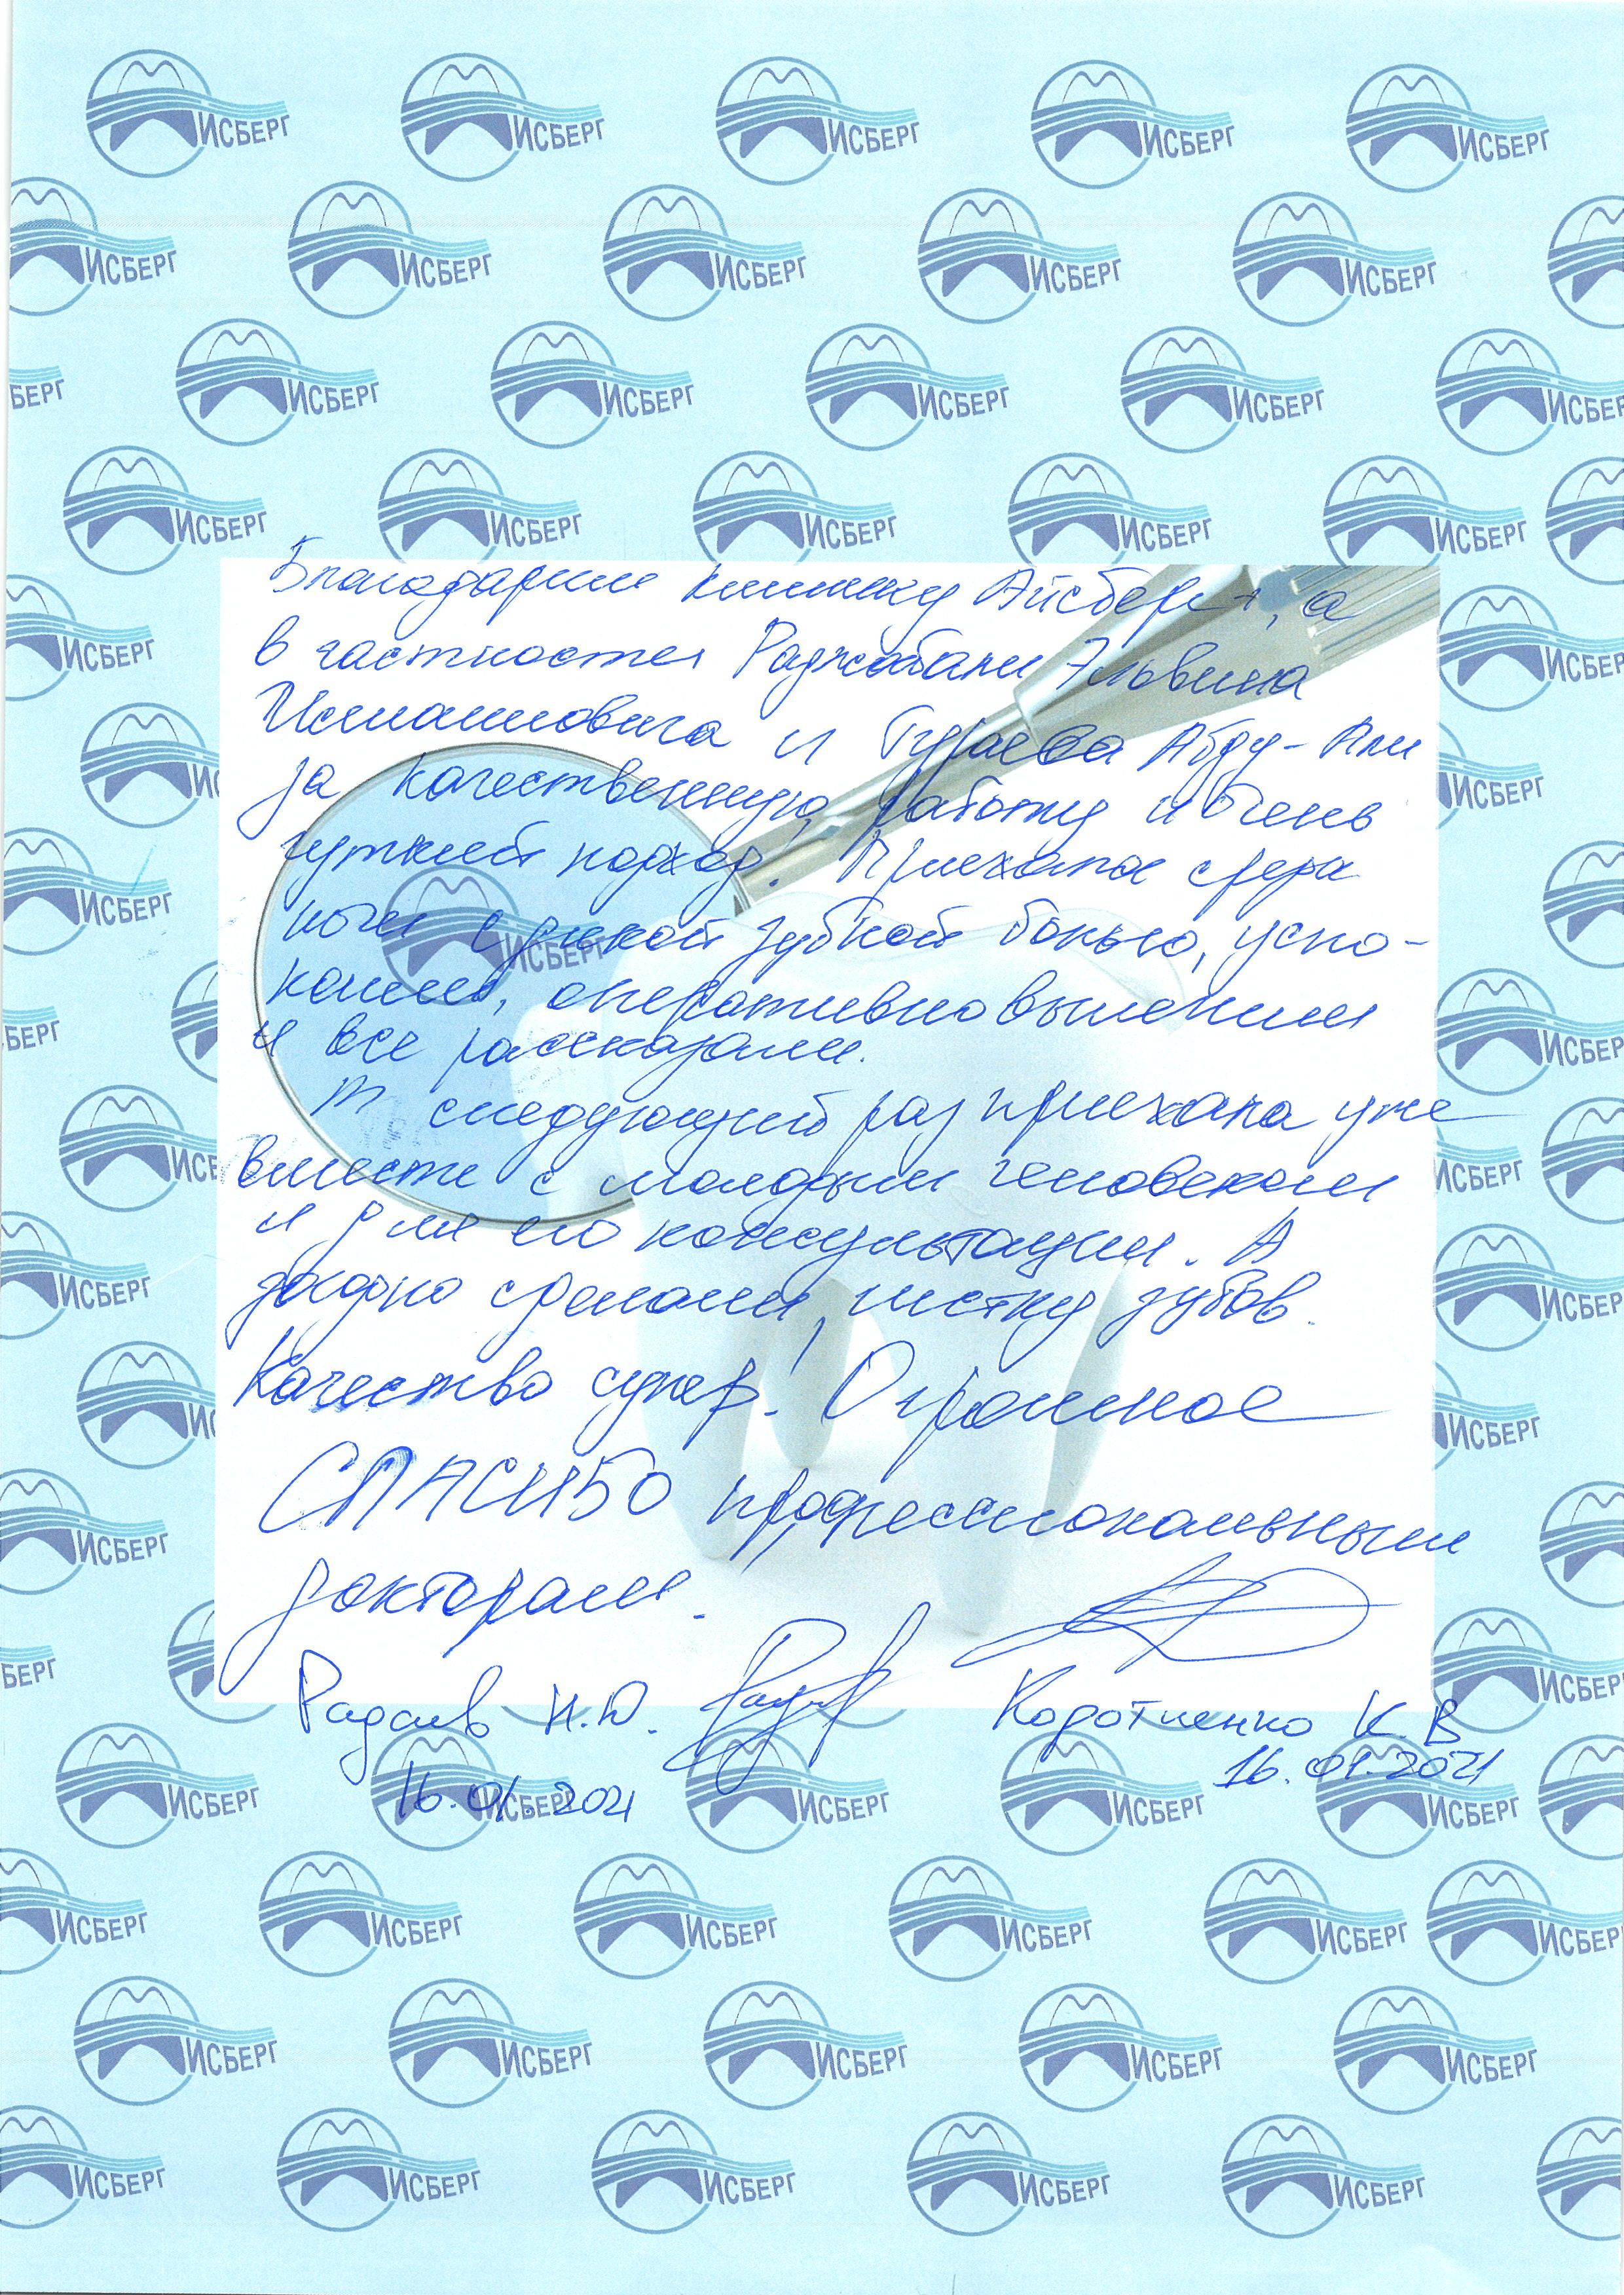 Благодарим клинику Айсберг, а
в частности Раджабали Эльвина
Исмаиловича и Гураева Абду-Али
за качественную работу и очень
чуткий подход! Приехала среди
ночи с дикой зубной болью, успо-
коили, оперативно вылечили
и все рассказали.
В следующий раз приехала уже
вместе с молодым человеком
и для его консультации. А
заодно сделали чистку зубов.
Качество супер! Огромное
СПАСИБО профессиональным
докторам.
Радаев Н.Ю.
Коротченко К.В
16.01.2021
16.01.2021
ИСБЕРГ